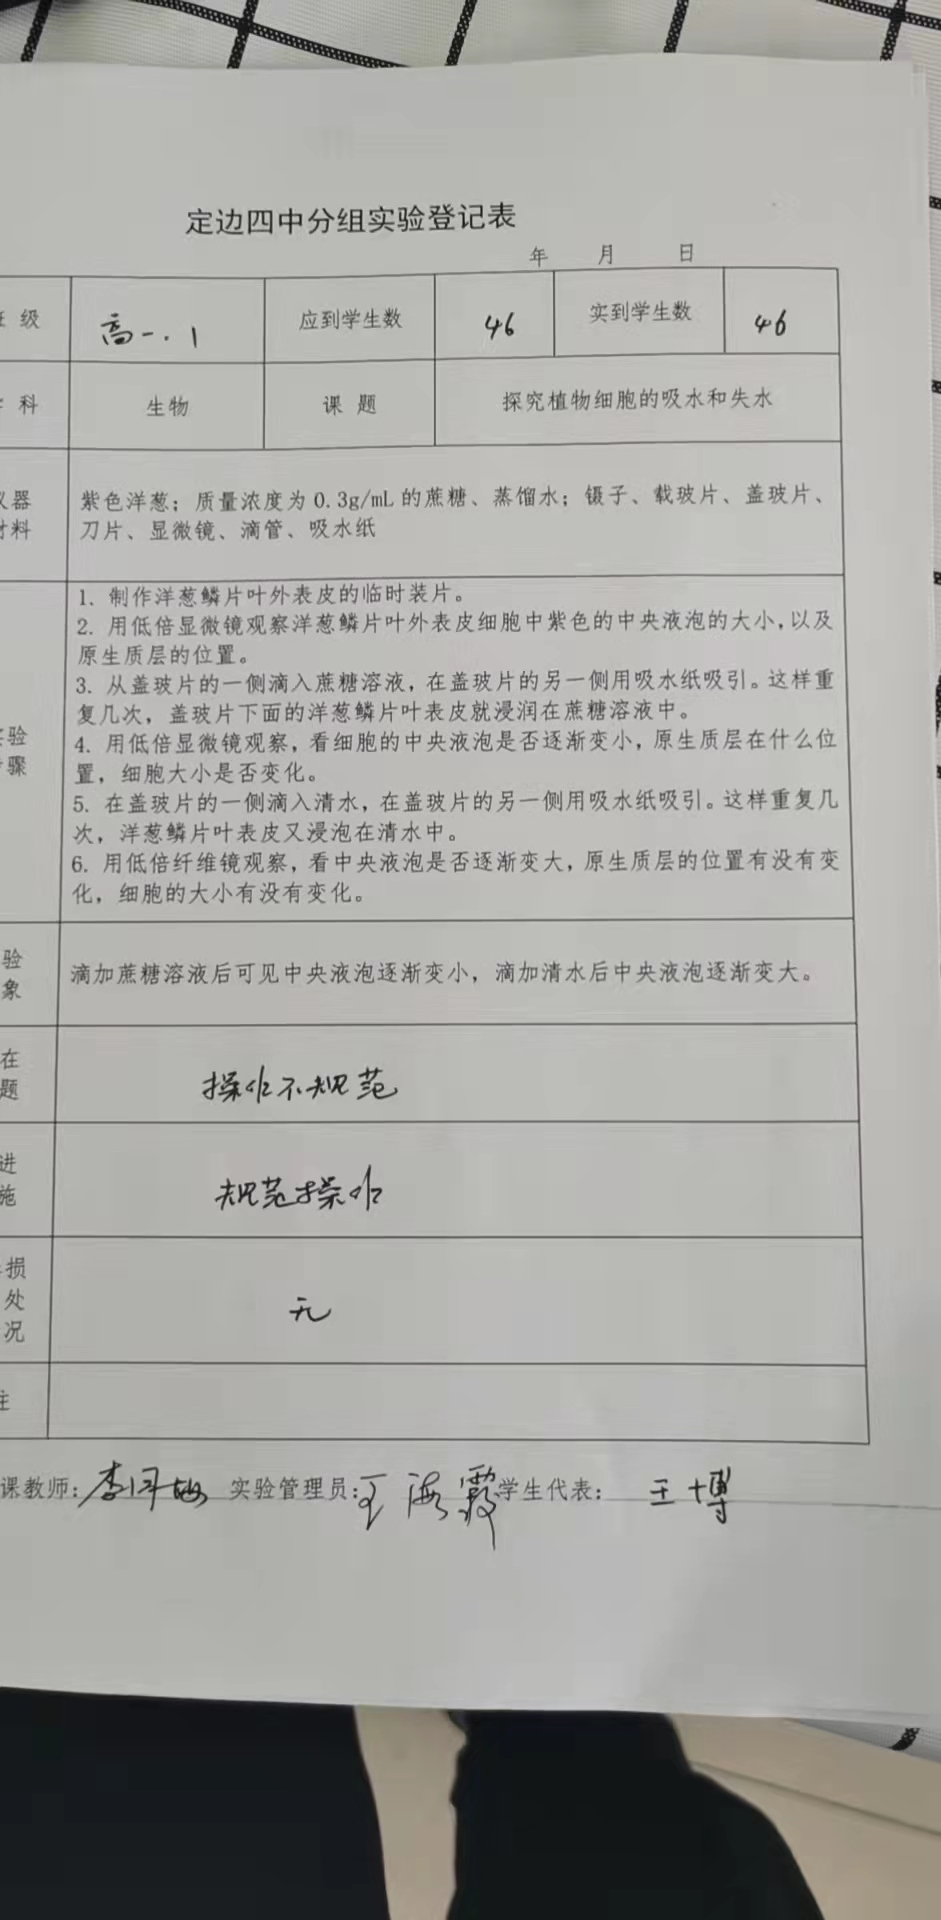 定边四中分组实验登记表
年 月 日
级 高一.1 应到学生数 46 实到学生数 46
科 生物 课 题 探究植物细胞的吸水和失水
器 紫色洋葱；质量浓度为 0.3g/mL 的蔗糖、蒸馏水；镊子、载玻片、盖玻片、
料 刀片、显微镜、滴管、吸水纸
1. 制作洋葱鳞片叶外表皮的临时装片。
2. 用低倍显微镜观察洋葱鳞片叶外表皮细胞中紫色的中央液泡的大小，以及
原生质层的位置。
3. 从盖玻片的一侧滴入蔗糖溶液，在盖玻片的另一侧用吸水纸吸引。这样重
复几次，盖玻片下面的洋葱鳞片叶表皮就浸润在蔗糖溶液中。
验 4. 用低倍显微镜观察，看细胞的中央液泡是否逐渐变小，原生质层在什么位
骤 置，细胞大小是否变化。
5. 在盖玻片的一侧滴入清水，在盖玻片的另一侧用吸水纸吸引。这样重复几
次，洋葱鳞片叶表皮又浸泡在清水中。
6. 用低倍纤维镜观察，看中央液泡是否逐渐变大，原生质层的位置有没有变
化，细胞的大小有没有变化。
验
象 滴加蔗糖溶液后可见中央液泡逐渐变小，滴加清水后中央液泡逐渐变大。
在
题 操作不规范
进
施 规范操作
损
处 无
况
注
课教师： 实验管理员：王海霞 学生代表： 王博